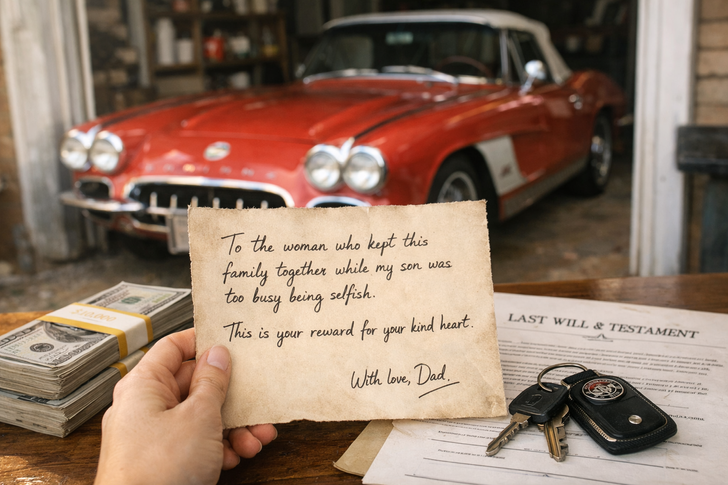 To the woman who kept this
family together while my son was
too busy being selfish.
This is your reward for your kind heart.
With love, Dad.
LAST WILL & TESTAMENT
$10,000